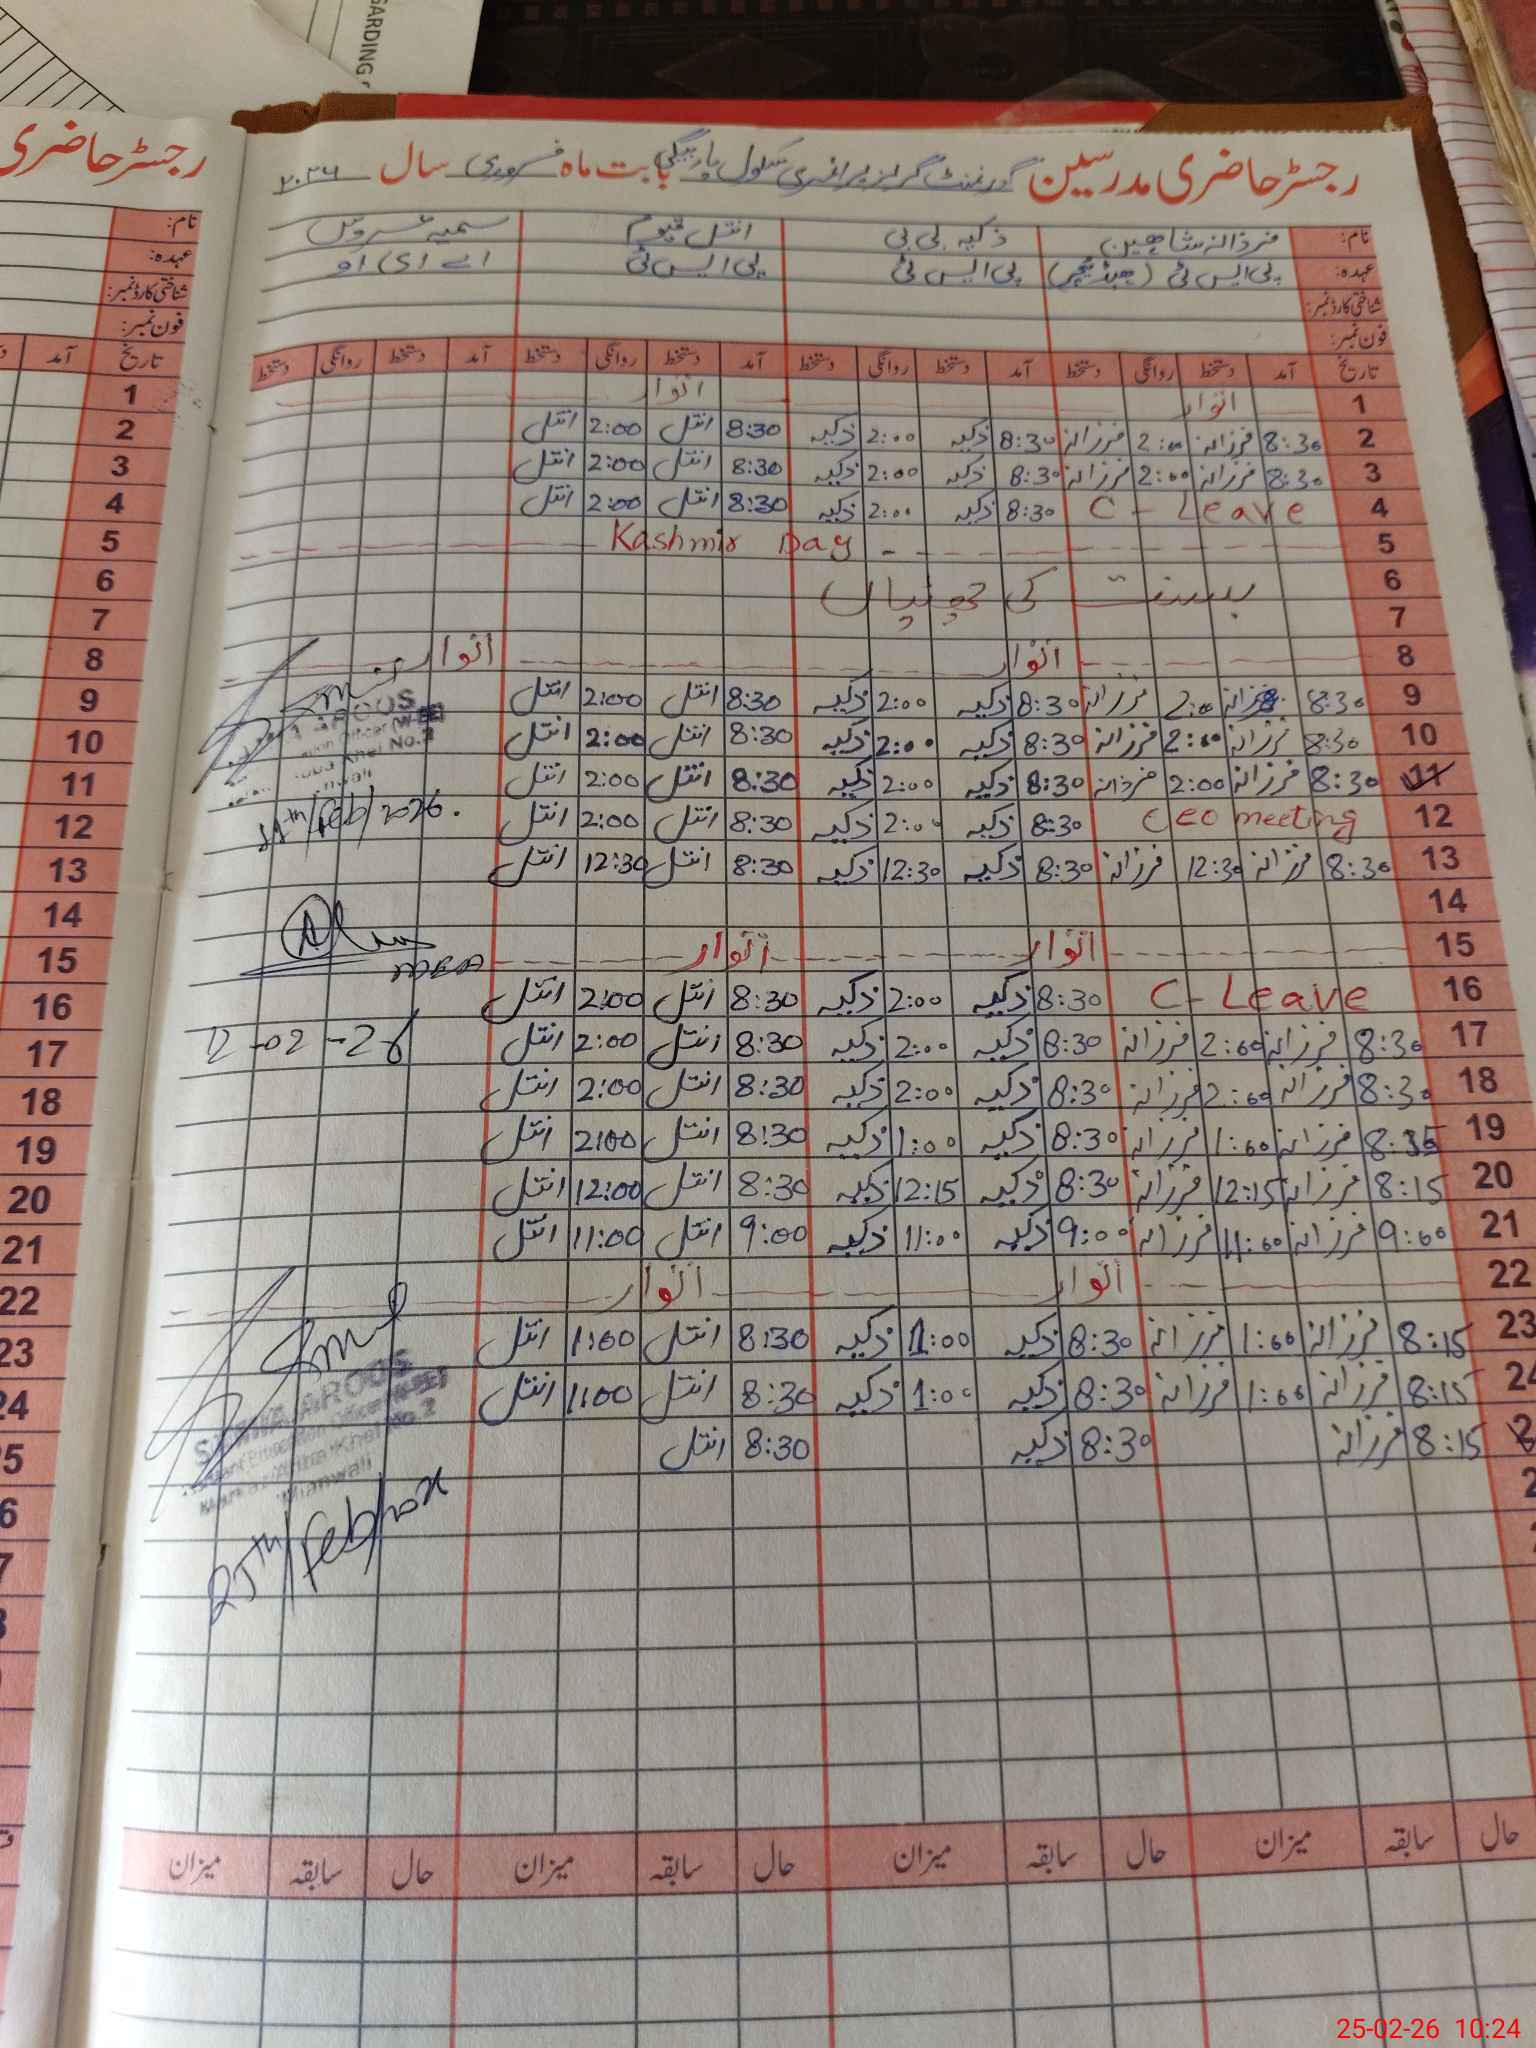 GARDING
رجسٹر حاضری
رجسٹر حاضری مدرسین گورنمنٹ گرلز پرائمری سکول بابت ماہ فروری سال ۲۰۲۶
نام: فرزانہ شاہین ذکیہ بی بی انتل قیوم سمیہ عروس
عہدہ: پی ایس ٹی (ہیڈ ٹیچر) پی ایس ٹی پی ایس ٹی اے ای او
شناختی کارڈ نمبر:
فون نمبر:
تاریخ آمد دستخط روانگی دستخط آمد دستخط روانگی دستخط آمد دستخط روانگی دستخط آمد دستخط روانگی دستخط
1 اتوار اتوار
2 8:30 فرزانہ 2:00 فرزانہ 8:30 ذکیہ 2:00 ذکیہ 8:30 انتل 2:00 انتل
3 8:30 فرزانہ 2:00 فرزانہ 8:30 ذکیہ 2:00 ذکیہ 8:30 انتل 2:00 انتل
4 C - Leave 8:30 ذکیہ 2:00 ذکیہ 8:30 انتل 2:00 انتل
5 Kashmir Day
6 بسنت کی چھٹیاں
7
8 اتوار اتوار
9 8:30 فرزانہ 2:00 فرزانہ 8:30 ذکیہ 2:00 ذکیہ 8:30 انتل 2:00 انتل
10 8:30 فرزانہ 2:00 فرزانہ 8:30 ذکیہ 2:00 ذکیہ 8:30 انتل 2:00 انتل
11 8:30 فرزانہ 2:00 فرزانہ 8:30 ذکیہ 2:00 ذکیہ 8:30 انتل 2:00 انتل
11th/Feb/2026.
12 CEO meeting 8:30 ذکیہ 2:00 ذکیہ 8:30 انتل 2:00 انتل
13 8:30 فرزانہ 12:30 فرزانہ 8:30 ذکیہ 12:30 ذکیہ 8:30 انتل 12:30 انتل
14
15 اتوار اتوار
MEA
16 C - Leave 8:30 ذکیہ 2:00 ذکیہ 8:30 انتل 2:00 انتل
12-02-26
17 8:30 فرزانہ 2:00 فرزانہ 8:30 ذکیہ 2:00 ذکیہ 8:30 انتل 2:00 انتل
18 8:30 فرزانہ 2:00 فرزانہ 8:30 ذکیہ 2:00 ذکیہ 8:30 انتل 2:00 انتل
19 فرزانہ 1:00 فرزانہ 8:30 ذکیہ 1:00 ذکیہ 8:30 انتل 2:00 انتل
20 8:15 فرزانہ 12:15 فرزانہ 8:30 ذکیہ 12:15 ذکیہ 8:30 انتل 12:00 انتل
21 9:00 فرزانہ 11:00 فرزانہ 9:00 ذکیہ 11:00 ذکیہ 9:00 انتل 11:00 انتل
22 اتوار اتوار
23 8:15 فرزانہ 1:00 فرزانہ 8:30 ذکیہ 1:00 ذکیہ 8:30 انتل 1:00 انتل
24 8:15 فرزانہ 1:00 فرزانہ 8:30 ذکیہ 1:00 ذکیہ 8:30 انتل 1:00 انتل
8:15 فرزانہ 8:30 ذکیہ 8:30 انتل
Mianwali
25th/Feb/
حال سابقہ میزان حال سابقہ میزان حال سابقہ میزان حال سابقہ میزان
نام:
عہدہ:
شناختی کارڈ نمبر:
فون نمبر:
تاریخ آمد
1
2
3
4
5
6
7
8
9
10
11
12
13
14
15
16
17
18
19
20
21
22
23
25-02-26 10:24